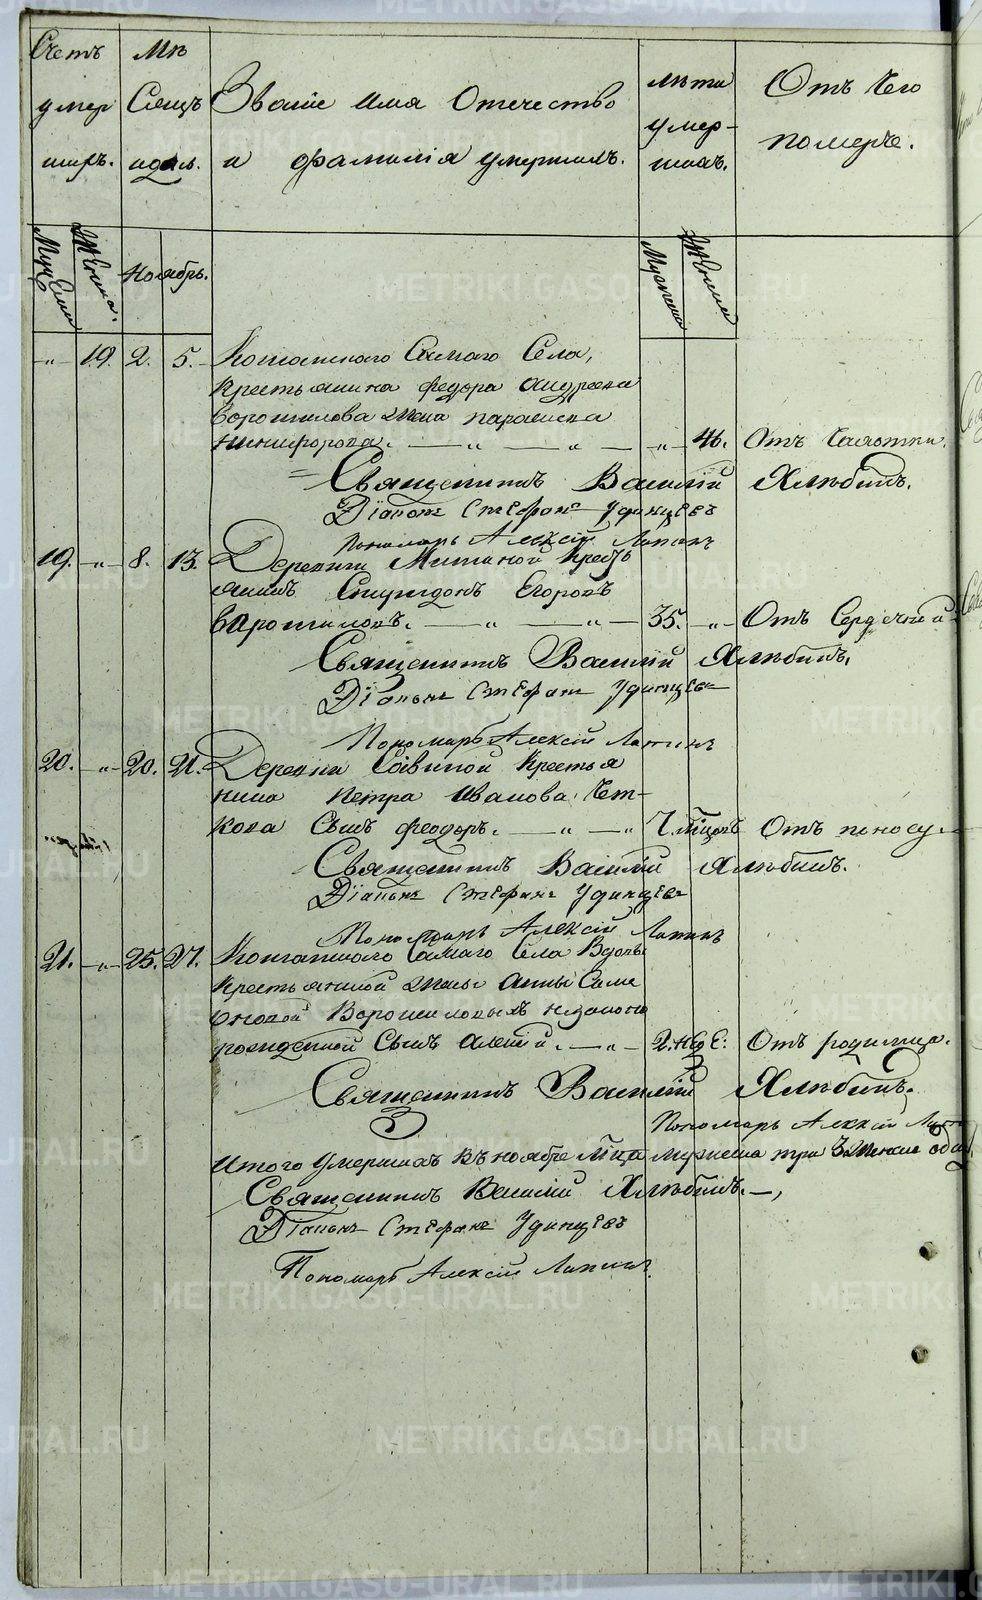 Счетъ умер шихъ.
Мѣ Сяцъ идень.
Званіе Имя Отечество
и фамилія умершихъ.
лѣта умер- шихъ.
Отъ Чего померъ.
Мужеска Женска.
Ноябрь.
Мужеска Женска
-„- 19. 2. 5. Самаго Села,
Крестьянина Федора Андреева
Ворошилова Жена Параскева
Никифорова. — „ — „ — „ — 46. Отъ Чахотки.
Священникъ Василій Хлѣбинъ.
Діаконъ Стефанъ Удинцевъ
Пономарь Алексій Лапинъ
19. -„- 8. 13. Деревни Митиной Кресть
янинъ Спиридонъ Егоровъ
Варошиловъ. — „ — „ — 35. -„- Отъ Сердечной
Священникъ Василій Хлѣбинъ.
Діаконъ Стефанъ Удинцевъ
Пономарь Алексій Лапинъ
20. -„- 20. 21. Деревни Савиной Крестья
нина Петра Иванова Чет-
кова Сынъ феодоръ. — „ — „ 7. мѣцовъ Отъ поносу.
Священникъ Василій Хлѣбинъ.
Діаконъ Стефанъ Удинцевъ
Пономарь Алексій Лапинъ
21. -„- 25. 27. Самаго Села Вдовы
Крестьянской Жены Анны Симе
оновой Ворошиловыхъ незаконо
рожденной Сынъ Алексій. — „ — 2. нед Е: Отъ родимца.
Священникъ Василій Хлѣбинъ.
Пономарь Алексій
Итого Умершихъ Въ ноябре Мцѣ мужеска три 3. Женска одна
Священникъ Василій Хлѣбинъ. —,
Діаконъ Стефанъ Удинцевъ
Пономарь Алексій Лапинъ.
METRIKI.GASO-URAL.RU